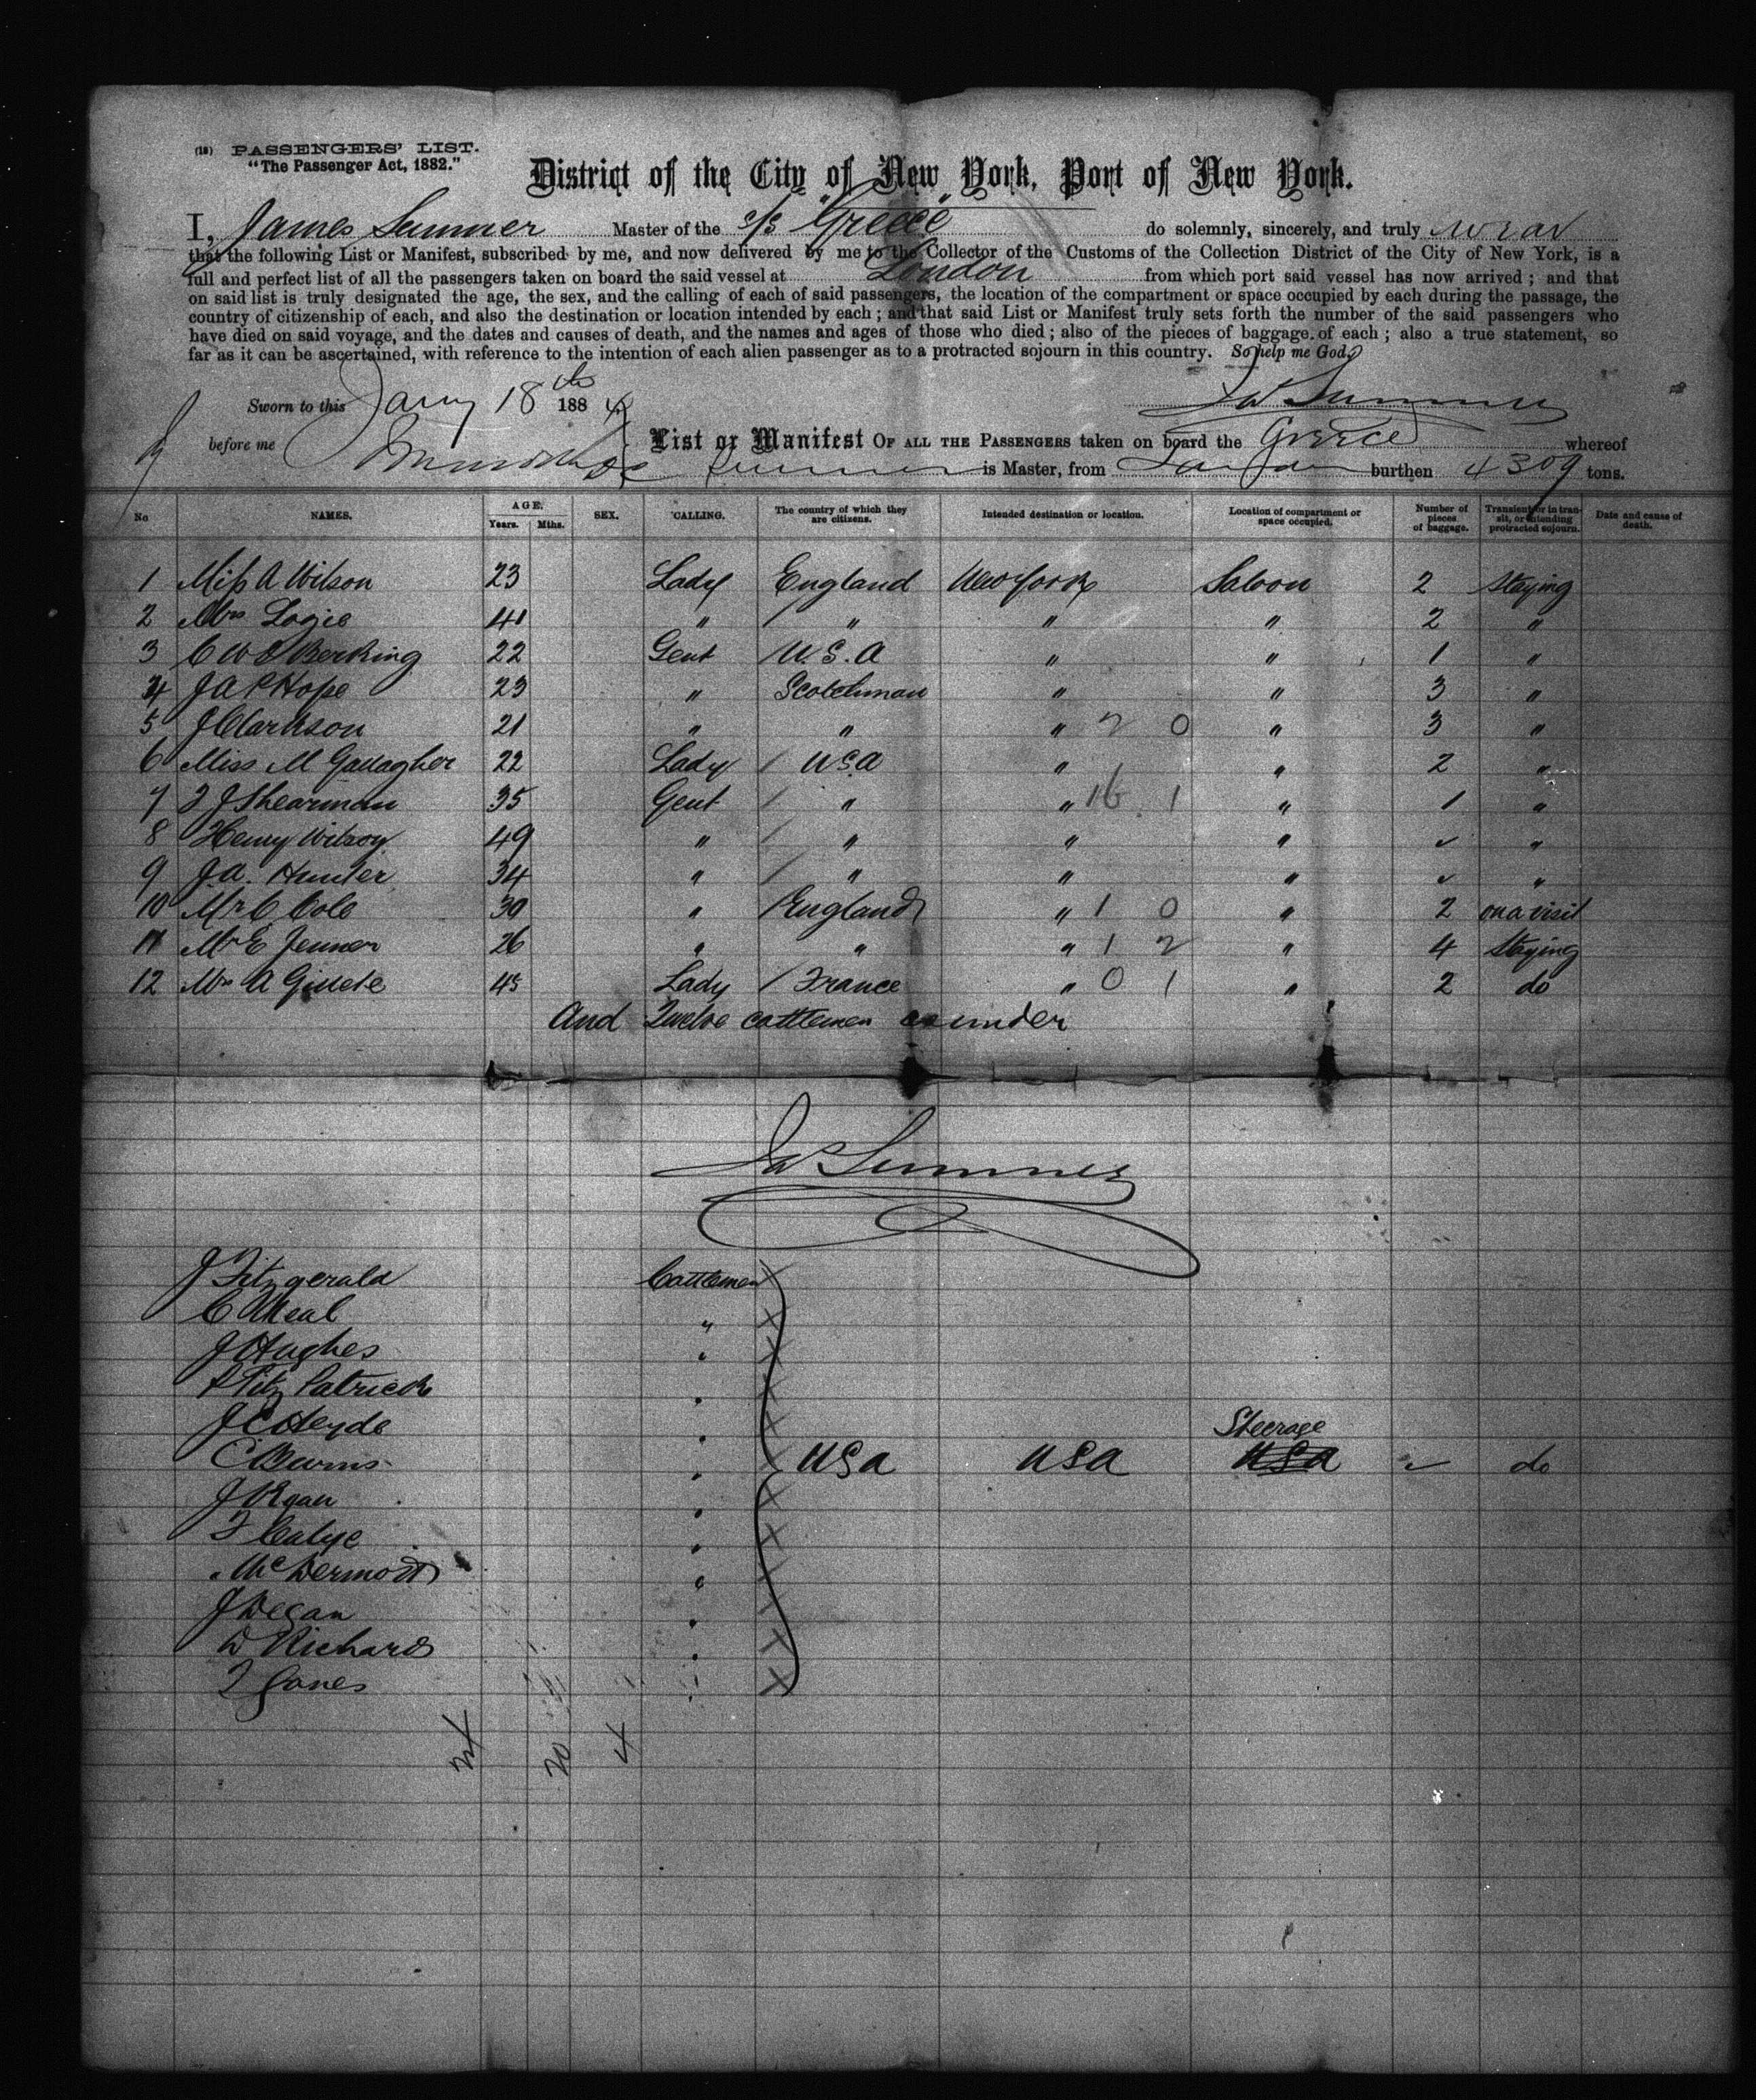 (18) PASSENGERS' LIST.
"The Passenger Act, 1882."
District of the City of New York, Port of New York.
I, James Sumner Master of the s/s "Greece" do solemnly, sincerely, and truly swear
that the following List or Manifest, subscribed by me, and now delivered by me to the Collector of the Customs of the Collection District of the City of New York, is a
full and perfect list of all the passengers taken on board the said vessel at London from which port said vessel has now arrived; and that
on said list is truly designated the age, the sex, and the calling of each of said passengers, the location of the compartment or space occupied by each during the passage, the
country of citizenship of each, and also the destination or location intended by each; and that said List or Manifest truly sets forth the number of the said passengers who
have died on said voyage, and the dates and causes of death, and the names and ages of those who died; also of the pieces of baggage of each; also a true statement, so
far as it can be ascertained, with reference to the intention of each alien passenger as to a protracted sojourn in this country. So help me God.
Sworn to this Jany 18th 1884 Jas Sumner
before me List or Manifest OF ALL THE PASSENGERS taken on board the Greece whereof
Sumner is Master, from London burthen 4309 tons.
No NAMES. AGE. Years. Mths. SEX. CALLING. The country of which they are citizens. Intended destination or location. Location of compartment or space occupied. Number of pieces of baggage. Transient or in transit, or intending protracted sojourn. Date and cause of death.
1 Miss A Wilson 23 Lady England New York Saloon 2 Staying
2 Mrs Logie 41 " " " " 2 "
3 C W Berking 22 Gent U.S.A " " 1 "
4 J A P Hope 23 " Scotchman " " 3 "
5 J Clarkson 21 " " " 2 0 " 3 "
6 Miss M Gallagher 22 Lady USA " " 2 "
7 J Shearman 35 Gent " " 16 1 " 1 "
8 Henry Wilson 49 " " " " "
9 J.A. Hunter 34 " " " " "
10 Mr C Cole 30 " England " 1 0 " 2 on a visit
11 Mr E Jenner 26 " " " 1 2 " 4 Staying
12 Mrs A 45 Lady France " 0 1 " 2 do
And Twelve cattlemen as under
Jas Sumner
J Fitzgerald Cattlemen
C Neal "
J Hughes "
P Fitz Patrick "
J C Heyde " Steerage
C Burns " USA USA USA do
J Ryan "
"
McDermott "
J Degan "
D Richards "
T Jones "
24 20 4